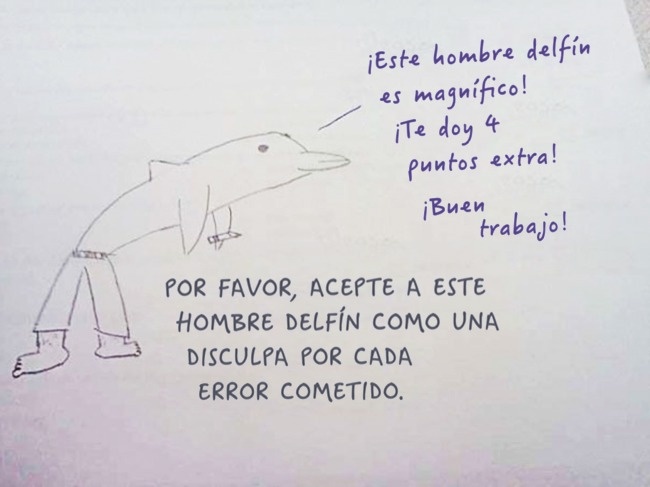 ¡Este hombre delfín
es magnífico!
¡Te doy 4
puntos extra!
¡Buen
trabajo!
POR FAVOR, ACEPTE A ESTE
HOMBRE DELFÍN COMO UNA
DISCULPA POR CADA
ERROR COMETIDO.